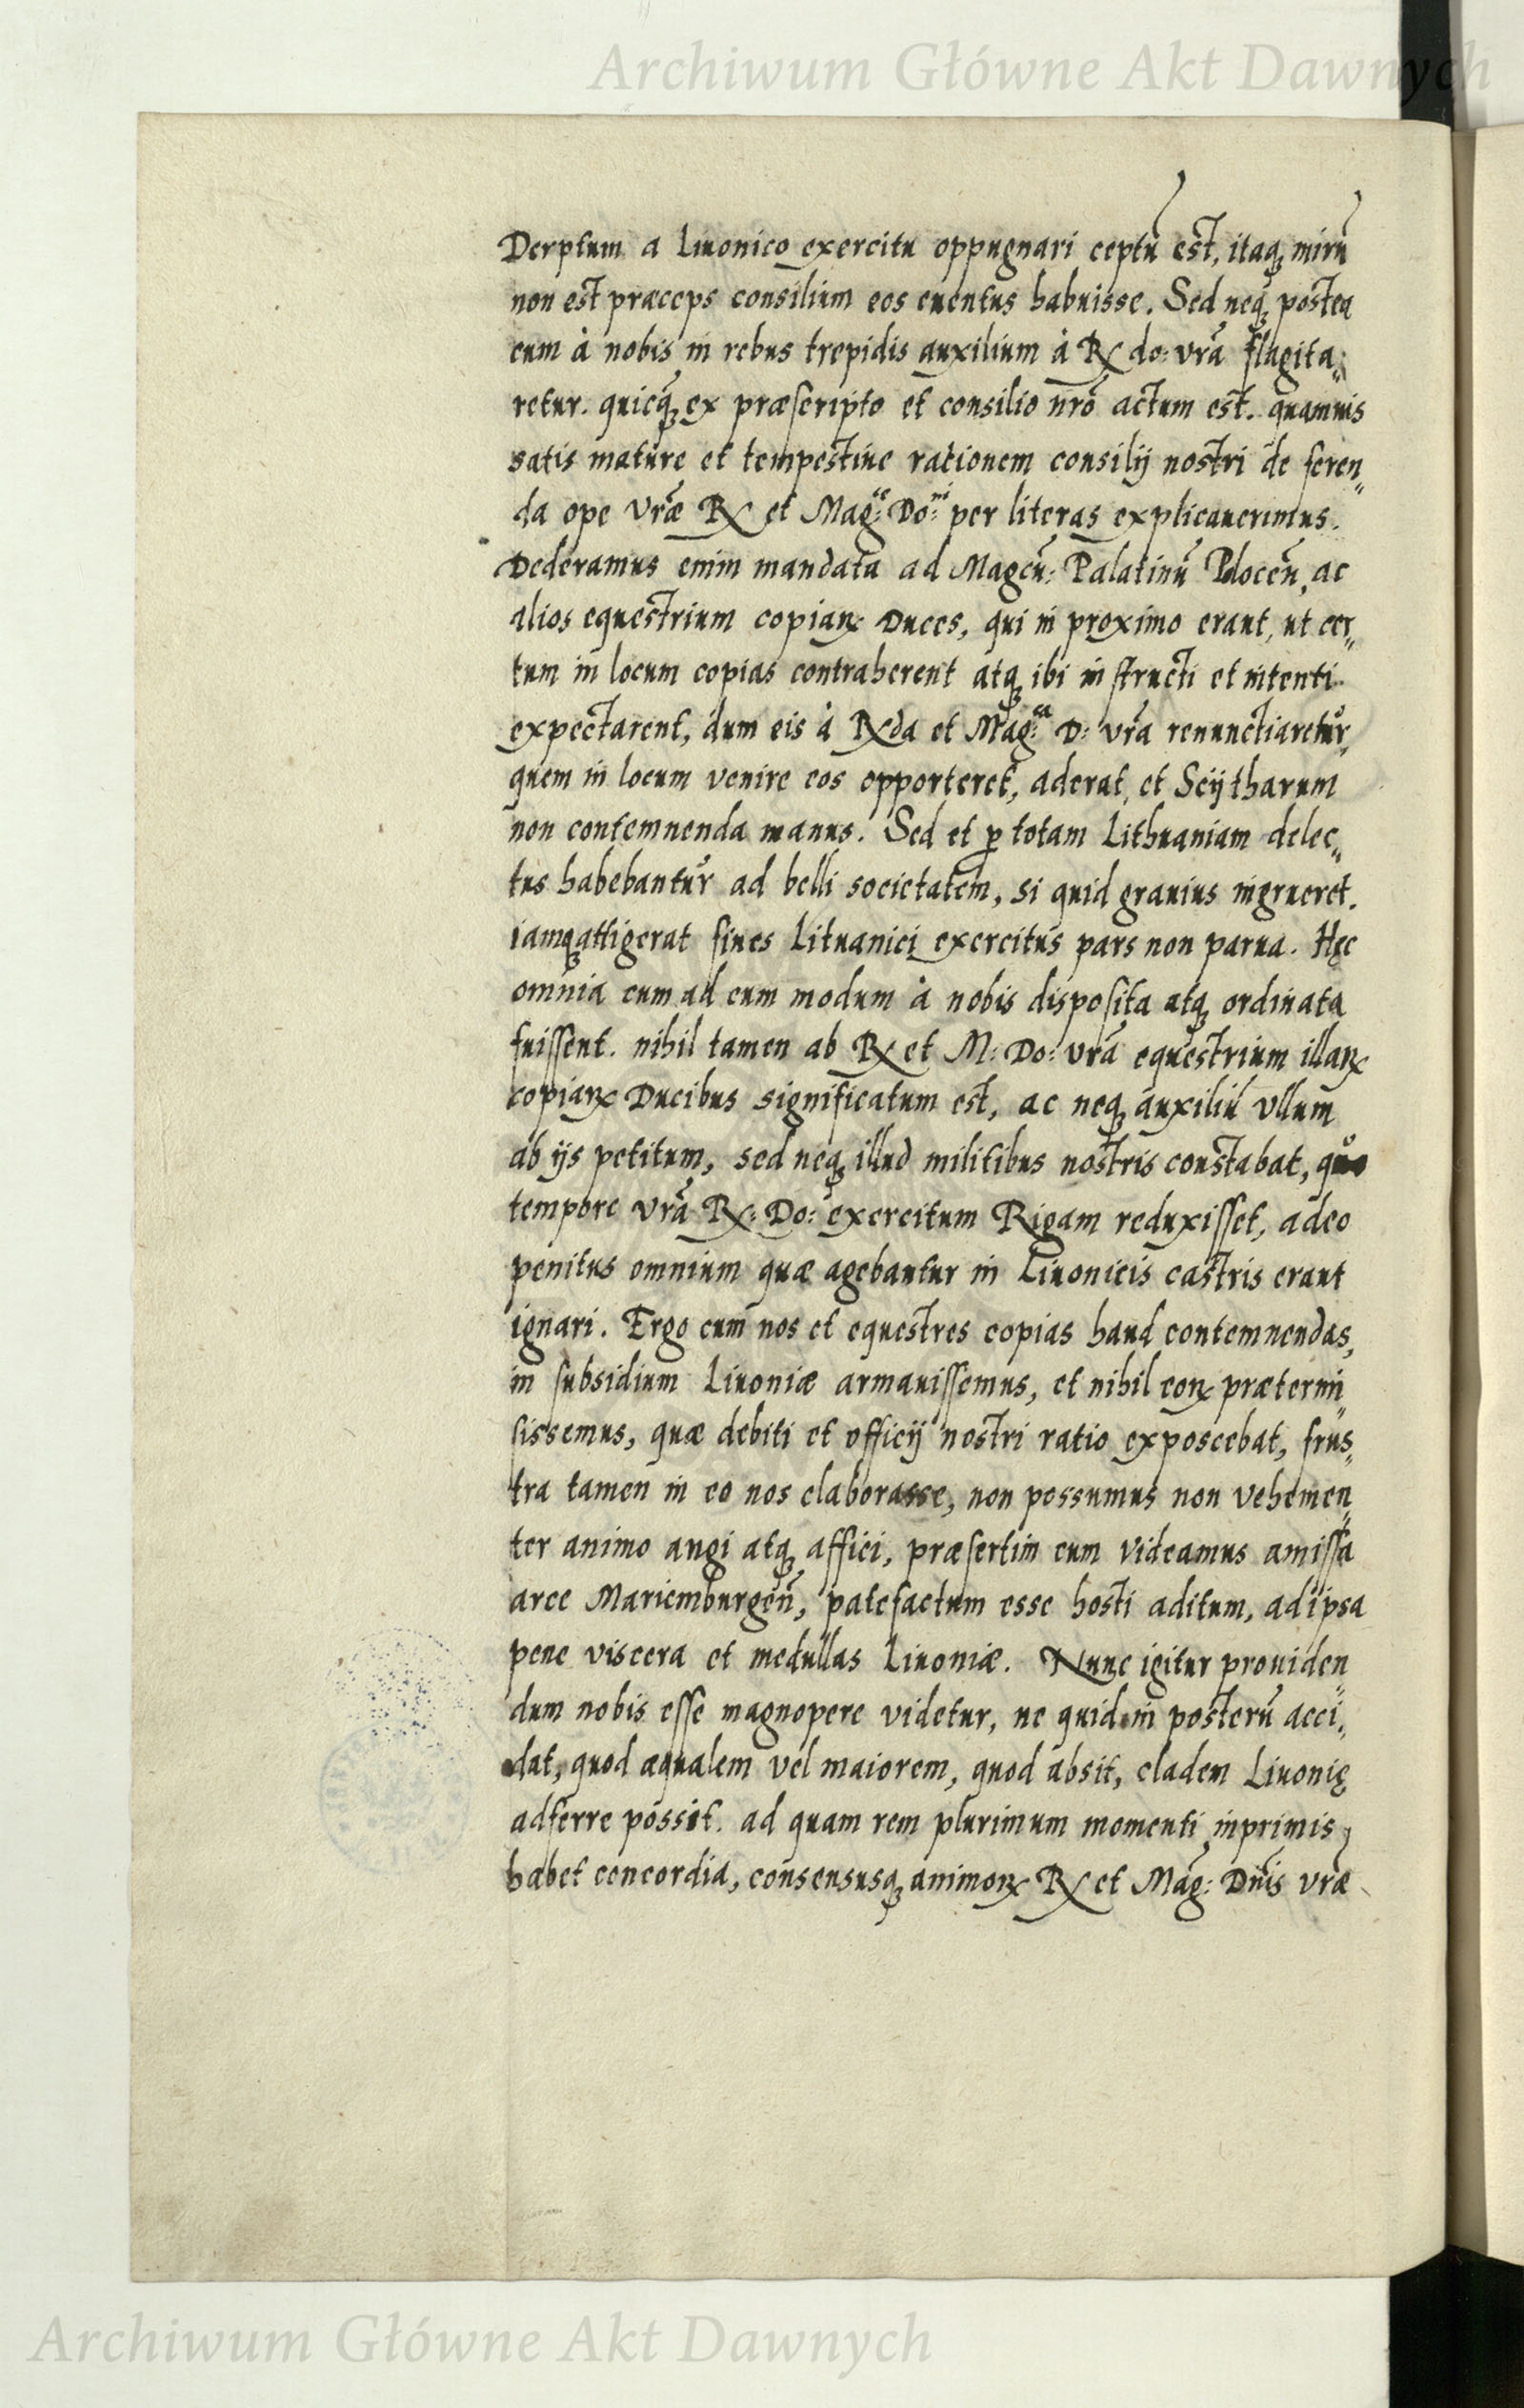 Archiwum Główne Akt Dawnych
Derptum a Liuonico exercitu oppugnari ceptũ est, itaq; mirũ
non est præceps consilium eos euentus habuisse. Sed neq; postea
cum à nobis in rebus trepidis auxilium à R. do: vrã flagita„
retur. quicq̃; ex præscripto et consilio nr̃o actum est. quamuis
satis mature et tempestiue rationem consilij nostri de feren„
da ope vræ̃ R. et Mag:ᶜᵉ Do:ⁿⁱ per literas explicauerimus.
Dederamus enim mandata ad Magcũ: Palatinũ Plocen̄, ac
alios equestrium copiaꝝ Duces, qui in proximo erant, ut cer„
tum in locum copias contraherent atq; ibi instructi et intenti
expectarent, dum eis à Rda et Mag:ᶜᵃ D: vrã renunctiaretur,
quem in locum venire eos opporteret, aderat, et Scijtharum
non contemnenda manus. Sed et ꝑ totam Lithuaniam delec„
tus habebantur ad belli societatem, si quid grauius ingrueret.
iamq; attigerat fines Lituanici exercitus pars non parua. Hęc
omnia cum ad eum modum à nobis disposita atq; ordinata
fuissent. nihil tamen ab R. et M: Do: vrã equestrium illaꝝ
copiaꝝ Ducibus significatum est, ac neq; auxiliũ vllum
ab ijs petitum, sed neq; illud militibus nostris constabat, quo
tempore vrã R: Do: exercitum Rigam reduxisset, adeo
penitus omnium quæ agebantur in Liuonicis castris erant
ignari. Ergo cum nos et equestres copias haud contemnendas,
in subsidium Liuoniæ armauissemus, et nihil eoꝝ prætermi„
sissemus, quæ debiti et officij nostri ratio exposcebat, frus„
tra tamen in eo nos elaborasse, non possumus non vehemen„
ter animo angi atq; affici, præsertim cum videamus amissa
arce Mariemburgen̄, patefactum esse hosti aditum, ad ipsa
pene viscera et medullas Liuoniæ. Nunc igitur prouiden„
dum nobis esse magnopere videtur, ne quid in posterũ acci„
dat, quod æqualem vel maiorem, quod absit, cladem Liuonię
adferre possit. ad quam rem plurimum momenti inprimis
habet concordia, consensusq; animoꝝ R. et Mag: Dnĩs vræ̃
Archiwum Główne Akt Dawnych